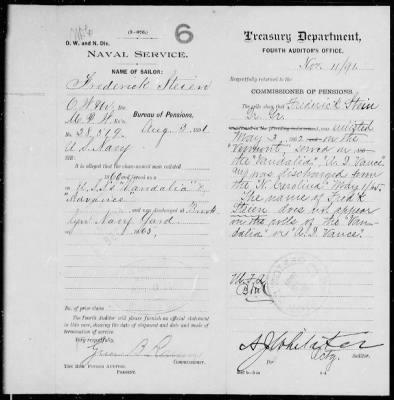 6
(3-076.)
O. W. and N. Div.
NAVAL SERVICE.
NAME OF SAILOR:
Frederick Steen
Bureau of Pensions,
No. 28,369. Aug 3, 1891
U.S. Navy
It is alleged that the above-named man enlisted
, 1860 and served as a
on U.S.S's "Vandalia" &
and was discharged at Brook-
lyn Navy Yard
on , 1865.
No. of prior claim
The Fourth Auditor will please furnish an official statement
in this case, showing the date of shipment and date and mode of
termination of service.
Very respectfully,
Green B. Raum
Commissioner.
THE 4TH FOURTH AUDITOR,
PRESENT.
Treasury Department,
FOURTH AUDITOR'S OFFICE.
Nov. 11/91
Respectfully returned to the
COMMISSIONER OF PENSIONS.
The rolls show that Frederick Stein
enlisted
May 3, 1862 on the
"Vermont", served on
the "Vandalia", "A. D. Vance"
and was discharged from
the "N. Carolina" May 1/65.
"The name of Fred'k
Steen does not appear
on the rolls of the "Van-
dalia" or "A. D. Vance."
A J Whitaker
Actg. Auditor.